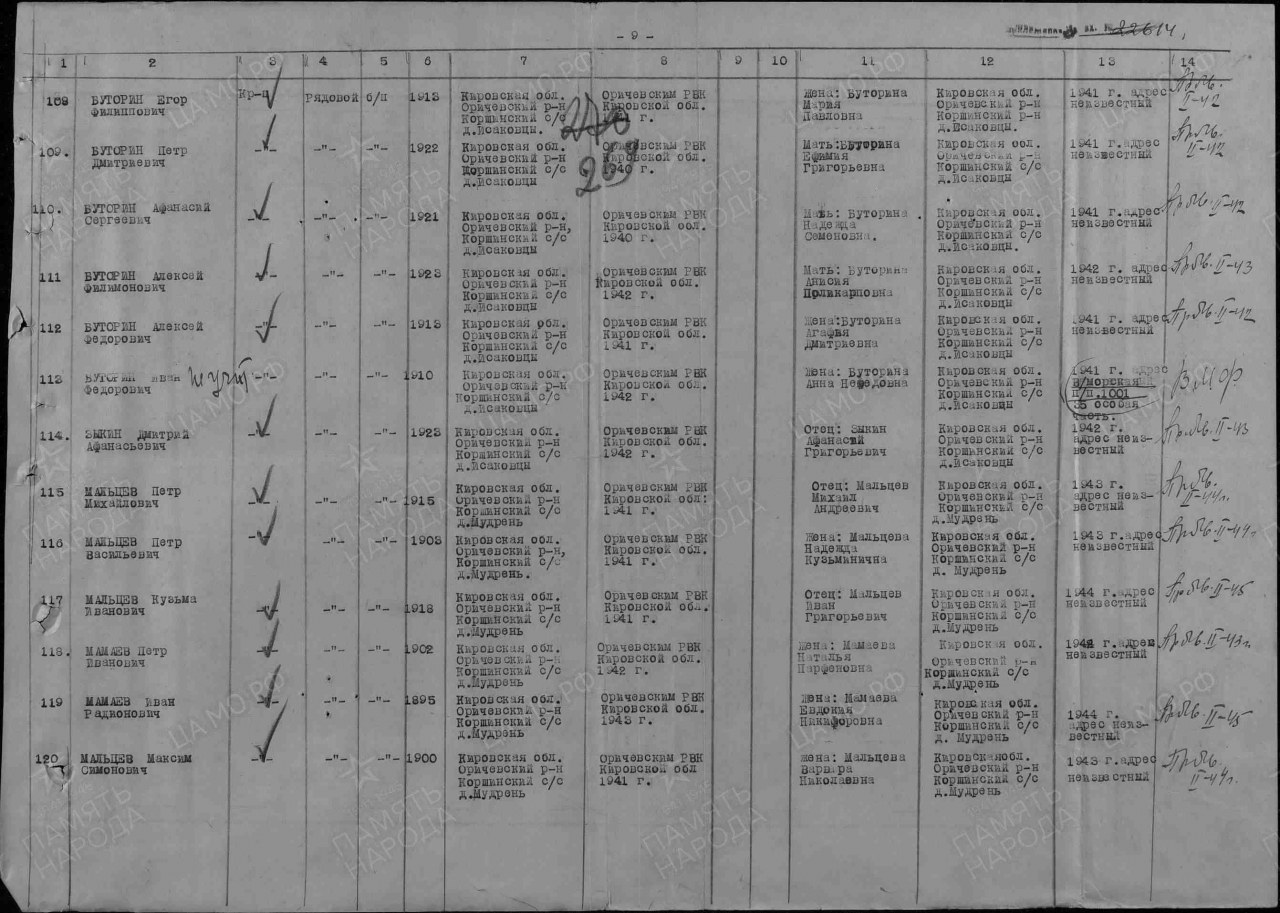 - 9 -
вх. № 22614.
1 2 3 4 5 6 7 8 9 10 11 12 13 14
108 БУТОРИН Егор Кр-ц Рядовой б/п 1913 Кировская обл. Оричевским РВК Жена: Буторина Кировская обл. 1941 г. адрес
Филиппович Оричевский р-н Кировской обл. Мария Оричевский р-н неизвестный II-42
Коршинский с/с г. Павловна Коршинский с/с
д.Исаковцы. д.Исаковцы.
269
109. БУТОРИН Петр -"- -"- -"- 1922 Кировская обл. Оричевским РВК Мать:Буторина Кировская обл. 1941 г. адрес
Дмитриевич Оричевский р-н Кировской обл. Ефимия Оричевский р-н неизвестный II-42
Коршинский с/с 1940 г. Григорьевна Коршинский с/с
д.Исаковцы д.Исаковцы
110. БУТОРИН Афанасий -"- -"- -"- 1921 Кировская обл. Оричевским РВК Мать: Буторина Кировская обл. 1941 г.адрес II-42
Сергеевич Оричевский р-н, Кировской обл. Надежда Оричевский р-н неизвестный
Коршинский с/с 1940 г. Семеновна. Коршинский с/с
д.Исаковцы д.Исаковцы.
111 БУТОРИН Алексей -"- -"- -"- 1923 Кировская обл. Оричевским РВК Мать: Буторина Кировская обл. 1942 г. адрес II-43
Филимонович Оричевский р-н Кировской обл. Анисия Оричевский р-н неизвестный
Коршинский с/с 1942 г. Поликарповна Коршинский с/с
д.Исаковцы д.Исаковцы
112 БУТОРИН Алексей -"- -"- -"- 1913 Кировская обл. Оричевским РВК Жена:Буторина Кировская обл. 1941 г. адрес II-42
Федорович Оричевский р-н Кировской обл. Агафия Оричевский р-н неизвестный
Коршинский с/с 1941 г. Дмитриевна Коршинский с/с
д.Исаковцы д.Исаковцы
113 БУТОРИН Иван -"- -"- -"- 1910 Кировская обл. Оричевским РВК Жена: Буторина Кировская обл. 1941 г. адрес ВМФ
Федорович Оричевский р-н Кировской обл. Анна Нефедовна Оричевский р-н в/морская
Коршинский с/с 1942 г. Коршинский с/с п/п.1001
д.Исаковцы д.Исаковцы 35 особая
часть.
114. ЗЫКИН Дмитрий -"- -"- -"- 1923 Кировская обл. Оричевским РВК Отец: Зыкин Кировская обл. 1942 г. II-43
Афанасьевич Оричевский р-н Кировской обл. Афанасий Оричевский р-н адрес неиз-
Коршинский с/с 1942 г. Григорьевич Коршинский с/с вестный
д.Исаковцы д.Исаковцы
115 МАЛЬЦЕВ Петр -"- -"- -"- 1915 Кировская обл. Оричевским РВК Отец: Мальцев Кировская обл. 1943 г.
Михайлович Оричевский р-н Кировской обл: Михаил Оричевский р-н адрес неиз- II-44г.
Коршинский с/с 1941 г. Андреевич Коршинский с/с вестный
д.Мудрень д.Мудрень
116 МАЛЬЦЕВ Петр -"- -"- -"- 1903 Кировская обл. Оричевским РВК Жена: Мальцева Кировская обл. 1943 г.адрес II-44г.
Васильевич Оричевский р-н, Кировской обл. Надежда Оричевский р-н неизвестный
Коршинский с/с 1941 г. Кузьминична Коршинский с/с
д.Мудрень. д. Мудрень
117 МАЛЬЦЕВ Кузьма -"- -"- -"- 1918 Кировская обл. Оричевским РВК Отец: Мальцев Кировская обл. 1944 г.адрес II-45
Иванович Оричевский р-н Кировской обл. Иван Оричевский р-н неизвестный
Коршинский с/с 1941 г. Григорьевич Коршинский с/с
д.Мудрень д.Мудрень
118. МАМАЕВ Петр -"- -"- -"- 1902 Кировская обл. Оричевским РВК Жена: Мамаева Кировская обл. г.адрес II-43г.
Иванович Оричевский р-н Кировской обл. Наталья Оричевский р-н неизвестный
Коршинский с/с 1942 г. Парфеновна Коршинский с/с
д.Мудрень д.Мудрень
119 МАМАЕВ Иван -"- -"- -"- 1895 Кировская обл. Оричевским РВК Жена: Мамаева Кировская обл. 1944 г. II-45
Радионович Оричевский р-н Кировской обл. Евдокия Оричевский р-н адрес неиз-
Коршинский с/с 1943 г. Никифоровна Коршинский с/с вестный
д.Мудрень д. Мудрень
120 МАЛЬЦЕВ Максим -"- -"- -"- 1900 Кировская обл. Оричевским РВК Жена: Мальцева Кировскаяобл. 1943 г.адрес
Симонович Оричевский р-н Кировской обл Варвара Оричевский р-н неизвестный II-44г.
Коршинский с/с 1941 г. Николаевна Коршинский с/с
д.Мудрень д.Мудрень
ПАМЯТЬ НАРОДА
ЦАМО.РФ